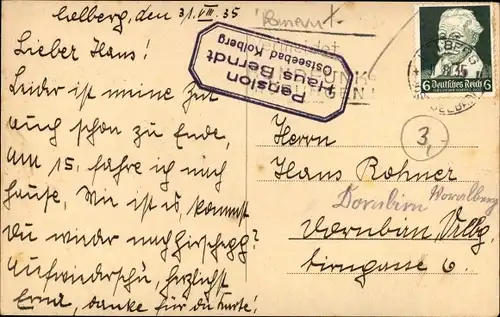 Colberg, den 31.VIII.35
Lieber Hans!
Leider ist meine Zeit
auch schon zu Ende,
am 15. fahre ich nach
Hause. Wie ist es, kommst
du wieder nach Hirschegg?
Aufwiederschn, herzlichst
Erna, danke für die Karte!
Pension
Haus Berndt
Ostseebad Kolberg
vermeidet
Deutsches Reich
6 6
3,
Herrn
Hans Rohner
Dornbirn Voralberg
Dornbirn Vlbg
Sirngasse 6.